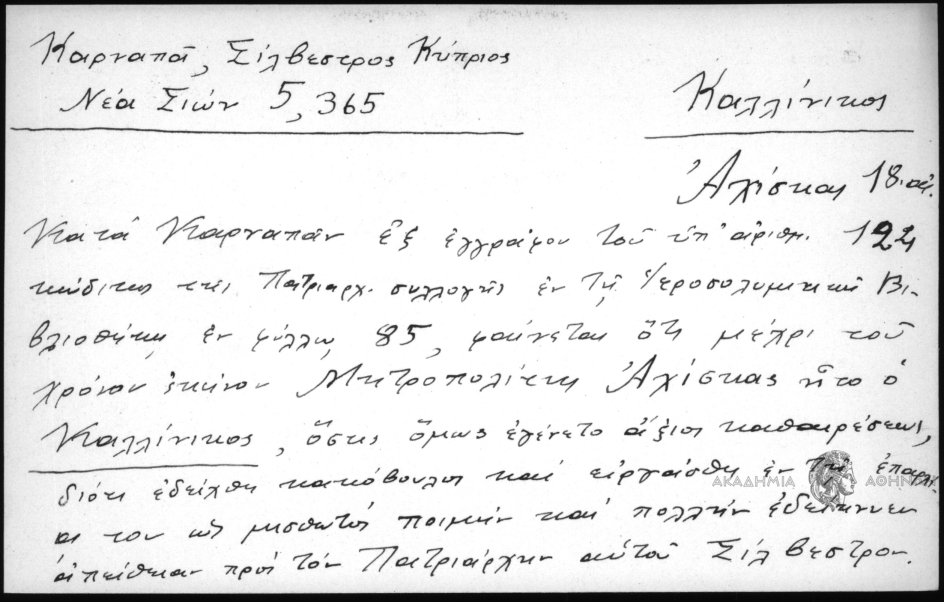 Καρναπᾶ, Σίλβεστρος Κύπριος
Νέα Σιών 5, 365
Καλλίνικος
Ἀχίσκας 18. αἰ.
Κατά Καρναπᾶν ἐξ ἐγγράφου τοῦ ὑπ' ἀριθμ. 124
κώδικος τῆς Πατριαρχ. συλλογῆς ἐν τῇ Ἱεροσολυμιτικῇ Βι-
βλιοθήκῃ, ἐν φύλλῳ 85, φαίνεται ὅτι μέχρι τοῦ
χρόνου ἐκείνου Μητροπολίτης Ἀχίσκας ἦτο ὁ
Καλλίνικος, ὅστις ὅμως ἐγένετο ἄξιος καθαιρέσεως,
διότι ἐδείχθη κακόβουλος καί εἰργάσθη ἐν τῇ ἐπαρχί-
ᾳ του ὡς μισθωτός ποιμήν καί πολλήν ἐδείκνυεν
ἀπείθειαν πρός τόν Πατριάρχην αὐτοῦ Σίλβεστρον.
ΑΚΑΔΗΜΙΑ ΑΘΗΝΩΝ